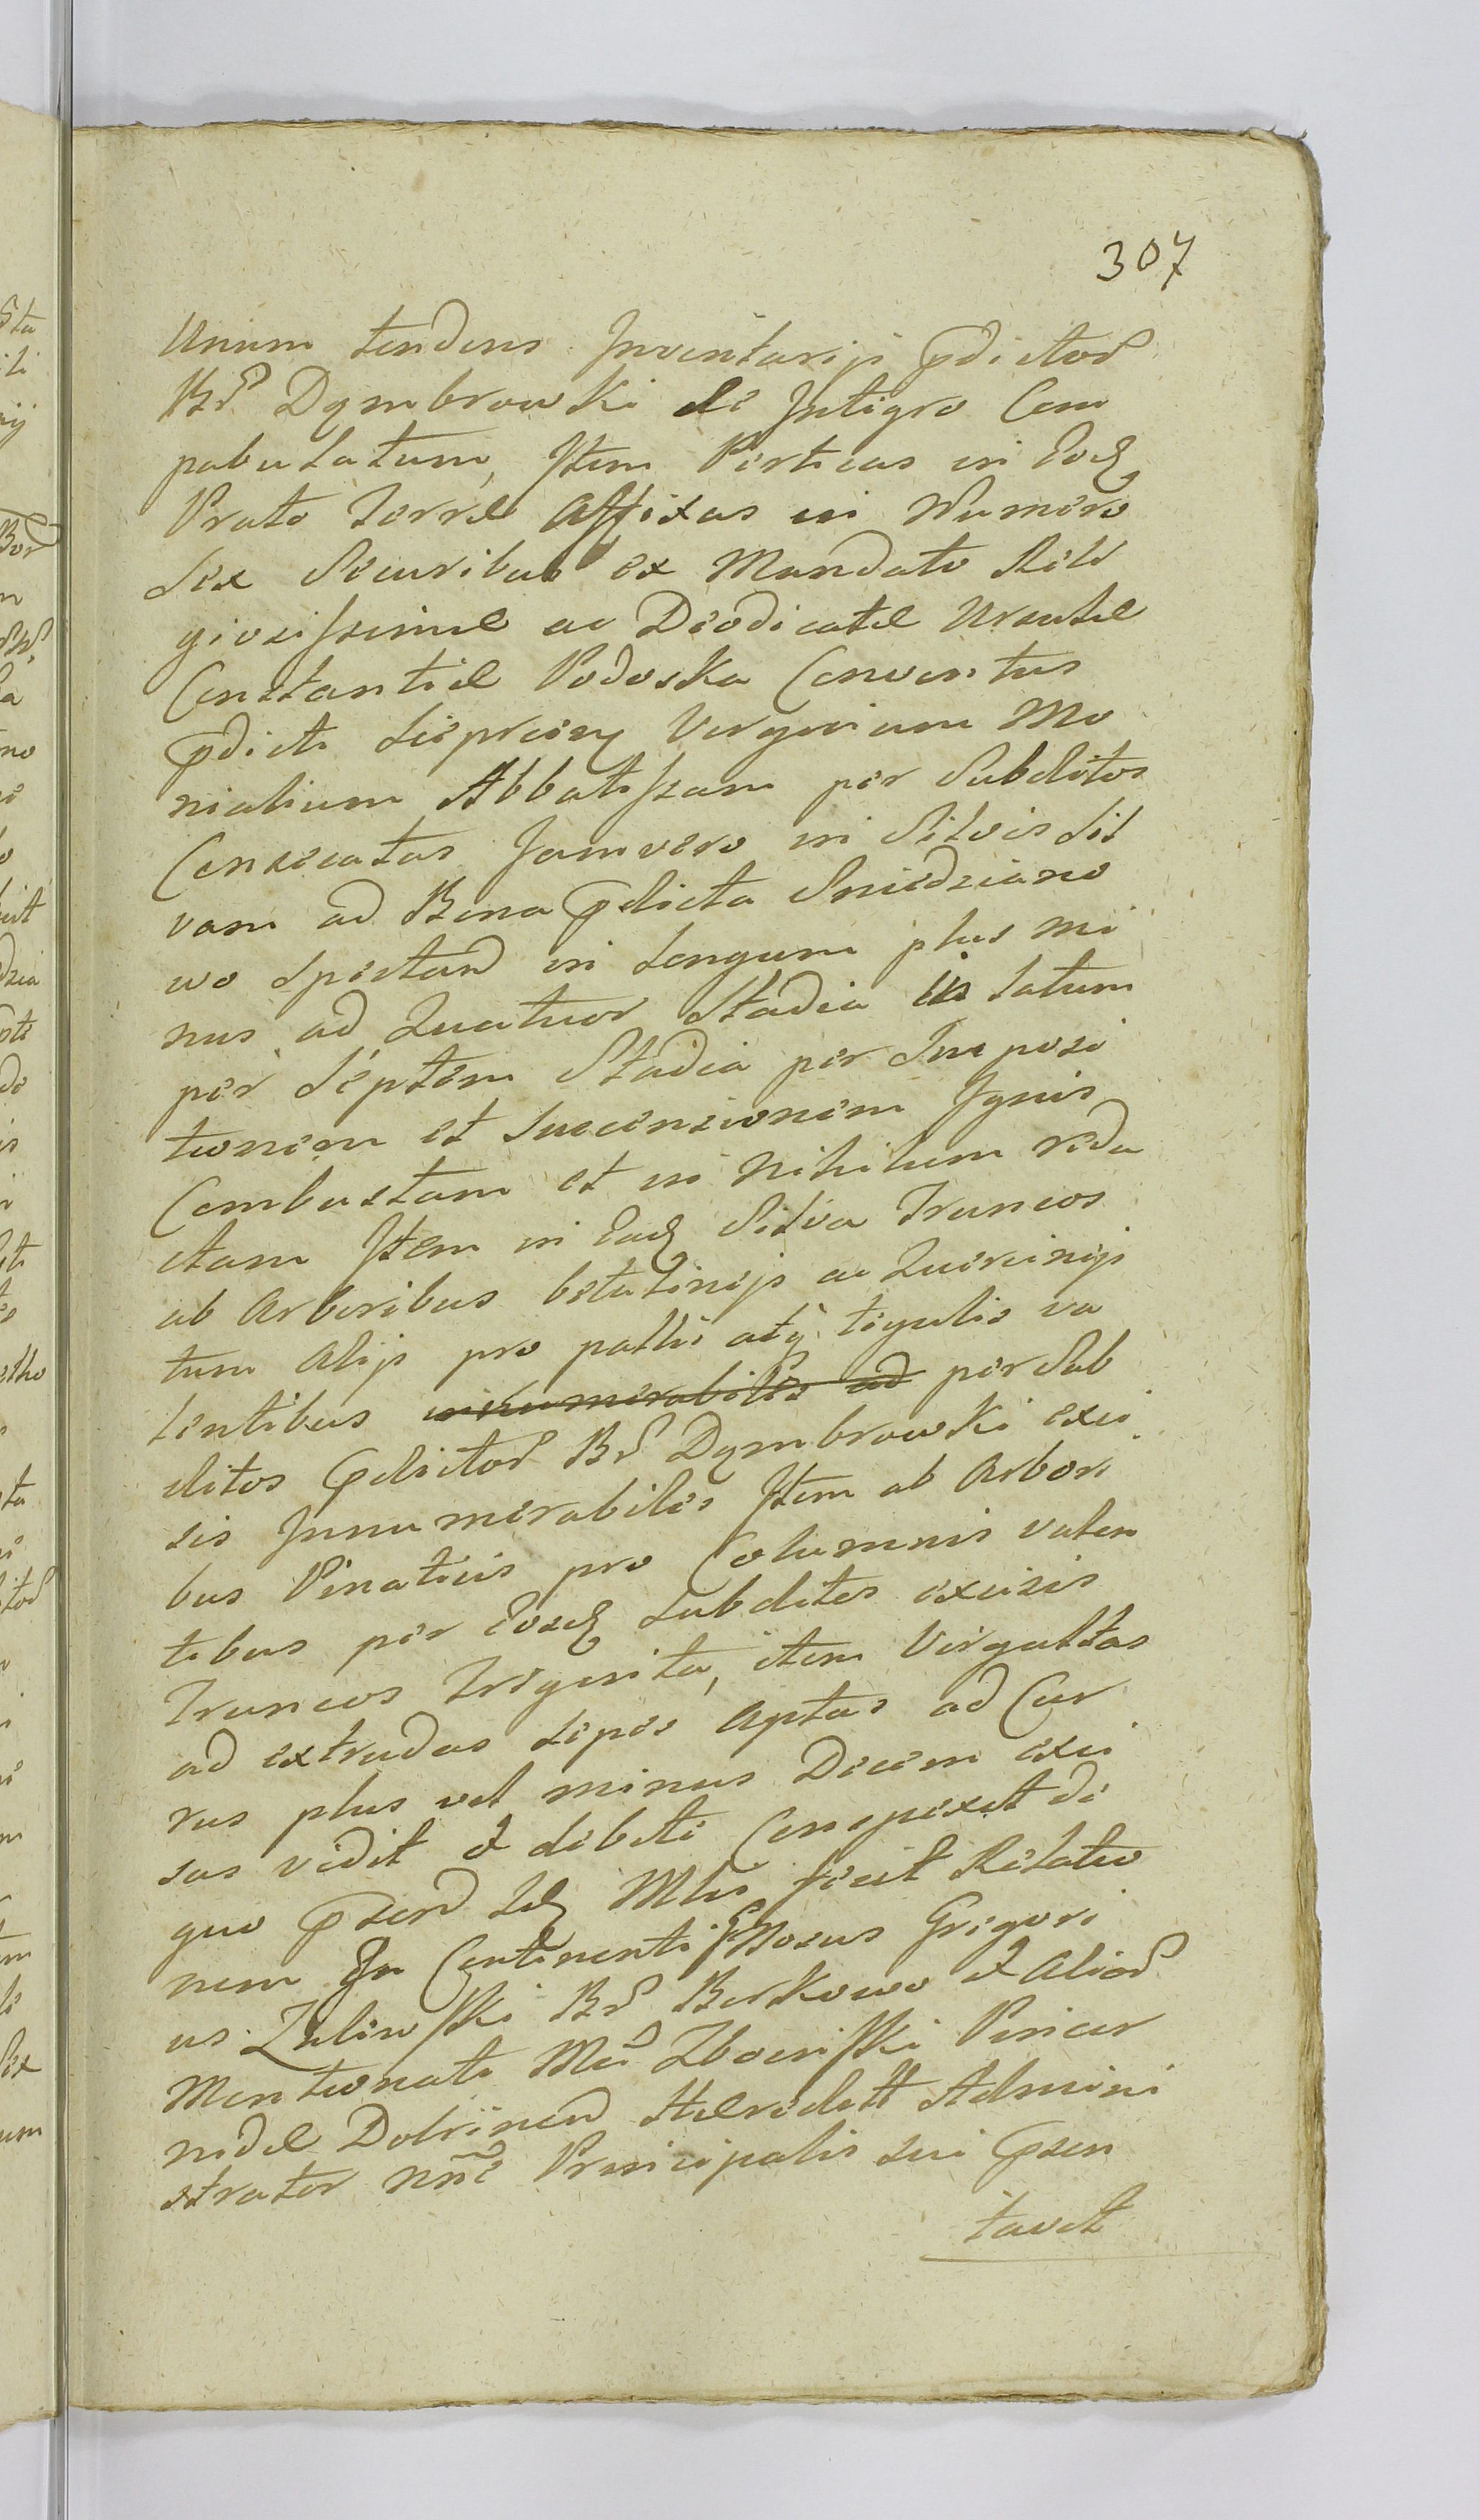 307
Unum tendens Inventarijs pdictor
Br Dymbrowski de Integro Com
pabulatum, Item Perticas in Eod
Prato Terræ Affixas in Numero
Sex Securibus ex Mandato Reli
giosissimæ ac Deodicatæ Ursulæ
Constantiæ Podoska Conventus
pdicti Sieprcens Virginum Mo
nialium Abbatissam per Subditos
Consecatas Jamvero in Silvis Sil
vam ad Bona pdicta Sniedziano
wo Spectan in Longum plus mi
nus ad Quatuor Stadia in latum
per Septem Stadia per Imposi
tionem et Succensionem Ignis
Combustam et in Nihilum redu
ctam Item in Ead Silva Truncos
ab Arboribus betulinijs ac Quercinijs
tum Alijs pro pallis atq tegulis va
lentibus innumerabiles ad per Sub
ditos pdictor Br Dymbrowski exci
sis Innumerabiles Item ab Arbori
bus Pinaticis pro Columnis valen
tibus per Eosd Subditos excisis
Truncos Triginta, item Virgultas
ad extrudas Sepes Aptas ad Cur
rus plus vel minus Decem exci
sas vidit & debite Conspexit de
quo psen Id Mlis fecit Relatio
nem In Continenti GNosus Gregori
us Zulinski Br Borkowo & Alior
Mentionati Mci Zboinski Pincer
nidæ Dobrinen Hæredett Admini
strator nne Principalis sui psen
tavit